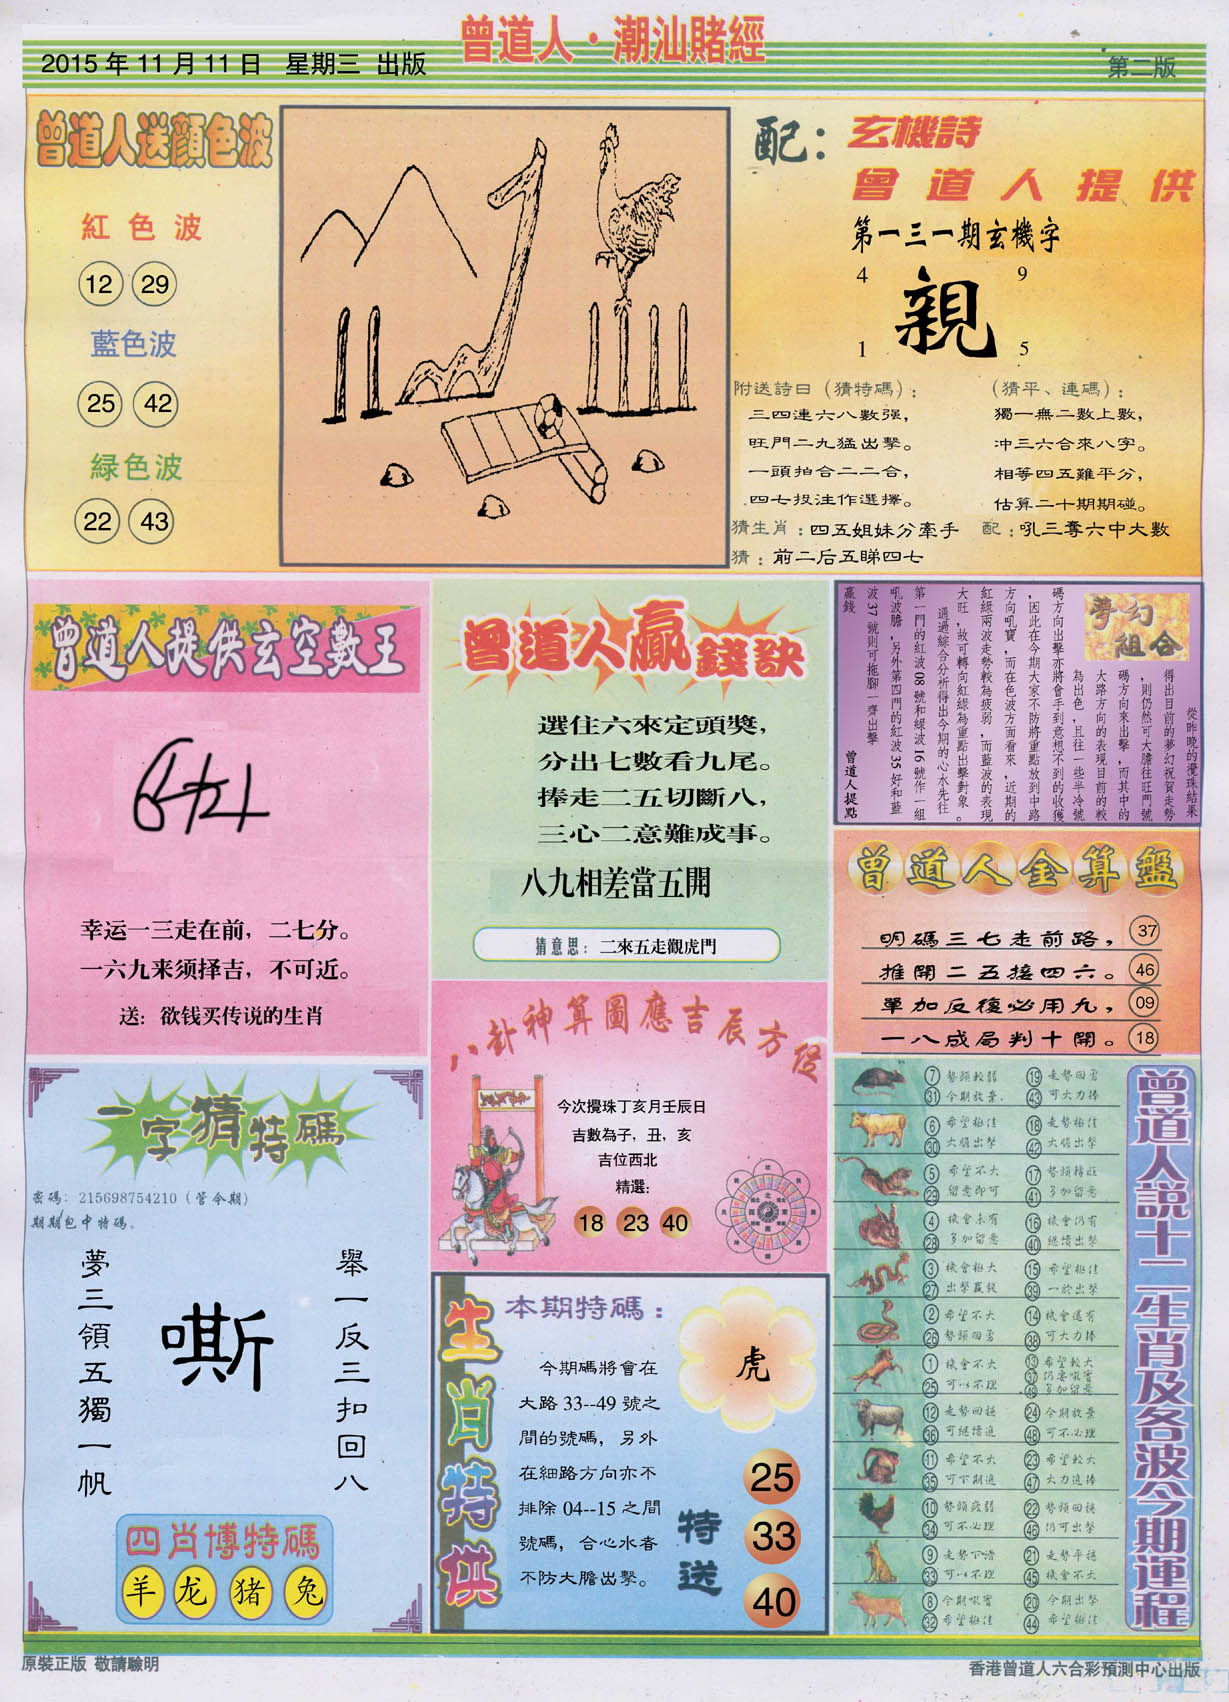 曾道人·潮汕賭經
2015年11月11日 星期三 出版
第二版
曾道人送顏色波
紅色波
12 29
藍色波
25 42
緑色波
22 43
配：玄機詩
曾道人提供
第一三一期玄機字
4 9
親
1 5
附送詩曰（猜特碼）：
三四連六八數强，
旺門二九猛出擊。
一頭拍合二二合，
四七投注作選擇。
（猜平、連碼）：
獨一無二數上數，
冲三六合來八字。
相等四五難平分，
估算二十期期碰。
猜生肖：四五姐妹分牽手
配：吼三奪六中大數
猜：前二后五睇四七
曾道人提供玄空數王
幸运一三走在前，二七分。
一六九来须择吉，不可近。
送：欲钱买传说的生肖
曾道人贏錢訣
選住六來定頭獎，
分出七數看九尾。
捧走二五切斷八，
三心二意難成事。
八九相差當五開
猜意思：二來五走觀虎門
夢幻組合
從昨晚的攪珠結果
得出目前的夢幻祝賀走勢
，則仍然可大膽往旺門號
碼方向來出擊，而其中的
大路方向的表現目前的較
為出色，且往一些半冷號
碼方向出擊亦將會手到意想不到的收獲
，因此在今期大家不防將重點放到中路
方向吼寶，而在色波方面看來，近期的
紅綠兩波走勢較為疲弱，而藍波的表現
大旺，故可轉向紅綠為重點出擊對象。
通過綜合分析得出今期的心水先往
第一門的紅波08號和綠波16號作一組
吼波膽，另外第四門的紅波35好和藍
波37號則可拖腳一齊出擊
贏錢
曾道人提點
曾道人金算盤
明碼三七走前路， 37
推開二五接四六。 46
單加反復必用九， 09
一八成局判十開。 18
一字猜特碼
密碼：215698754210（管令期）
期期包中特碼。
舉一反三扣回八
嘶
夢三領五獨一帆
四肖博特碼
羊 龙 猪 兔
八卦神算圖應吉辰方位
今次攪珠丁亥月壬辰日
吉數為子，丑，亥
吉位西北
精選：
18 23 40
生肖特供
本期特碼：
虎
今期碼將會在
大路33--49號之
間的號碼，另外
在細路方向亦不
排除04--15之間
號碼，合心水者
不防大膽出擊。
特送
25
33
40
曾道人説十二生肖及各波今期運程
7 勢頭較弱 19 走勢回勇
31 今期放棄 43 可大力捧
6 希望極佳 18 走勢極佳
30 大膽出擊 42 大膽出擊
5 希望不大 17 勢頭轉旺
29 留意即可 41 多加留意
4 機會未有 16 機會仍有
28 多加留意 40 繼續出擊
3 機會極大 15 希望極佳
27 出擊贏錢 39 一於出擊
2 希望不大 14 機會還有
26 勢頭回勇 38 可大力捧
1 機會不大 13 希望較大
25 可以不理 37 仍要吼實
49 多加留意
12 走勢回穩 24 今期放棄
36 可繼續追 48 可不必理
11 希望不大 23 希望較大
35 可下期追 47 大力追捧
10 勢頭疲弱 22 勢頭回穩
34 可不必理 46 仍可出擊
9 走勢下滑 21 走勢平穩
33 可以不理 45 機會不大
8 今期吼實 20 今期出擊
32 希望極佳 44 希望極佳
原裝正版 敬請驗明
香港曾道人六合彩預測中心出版